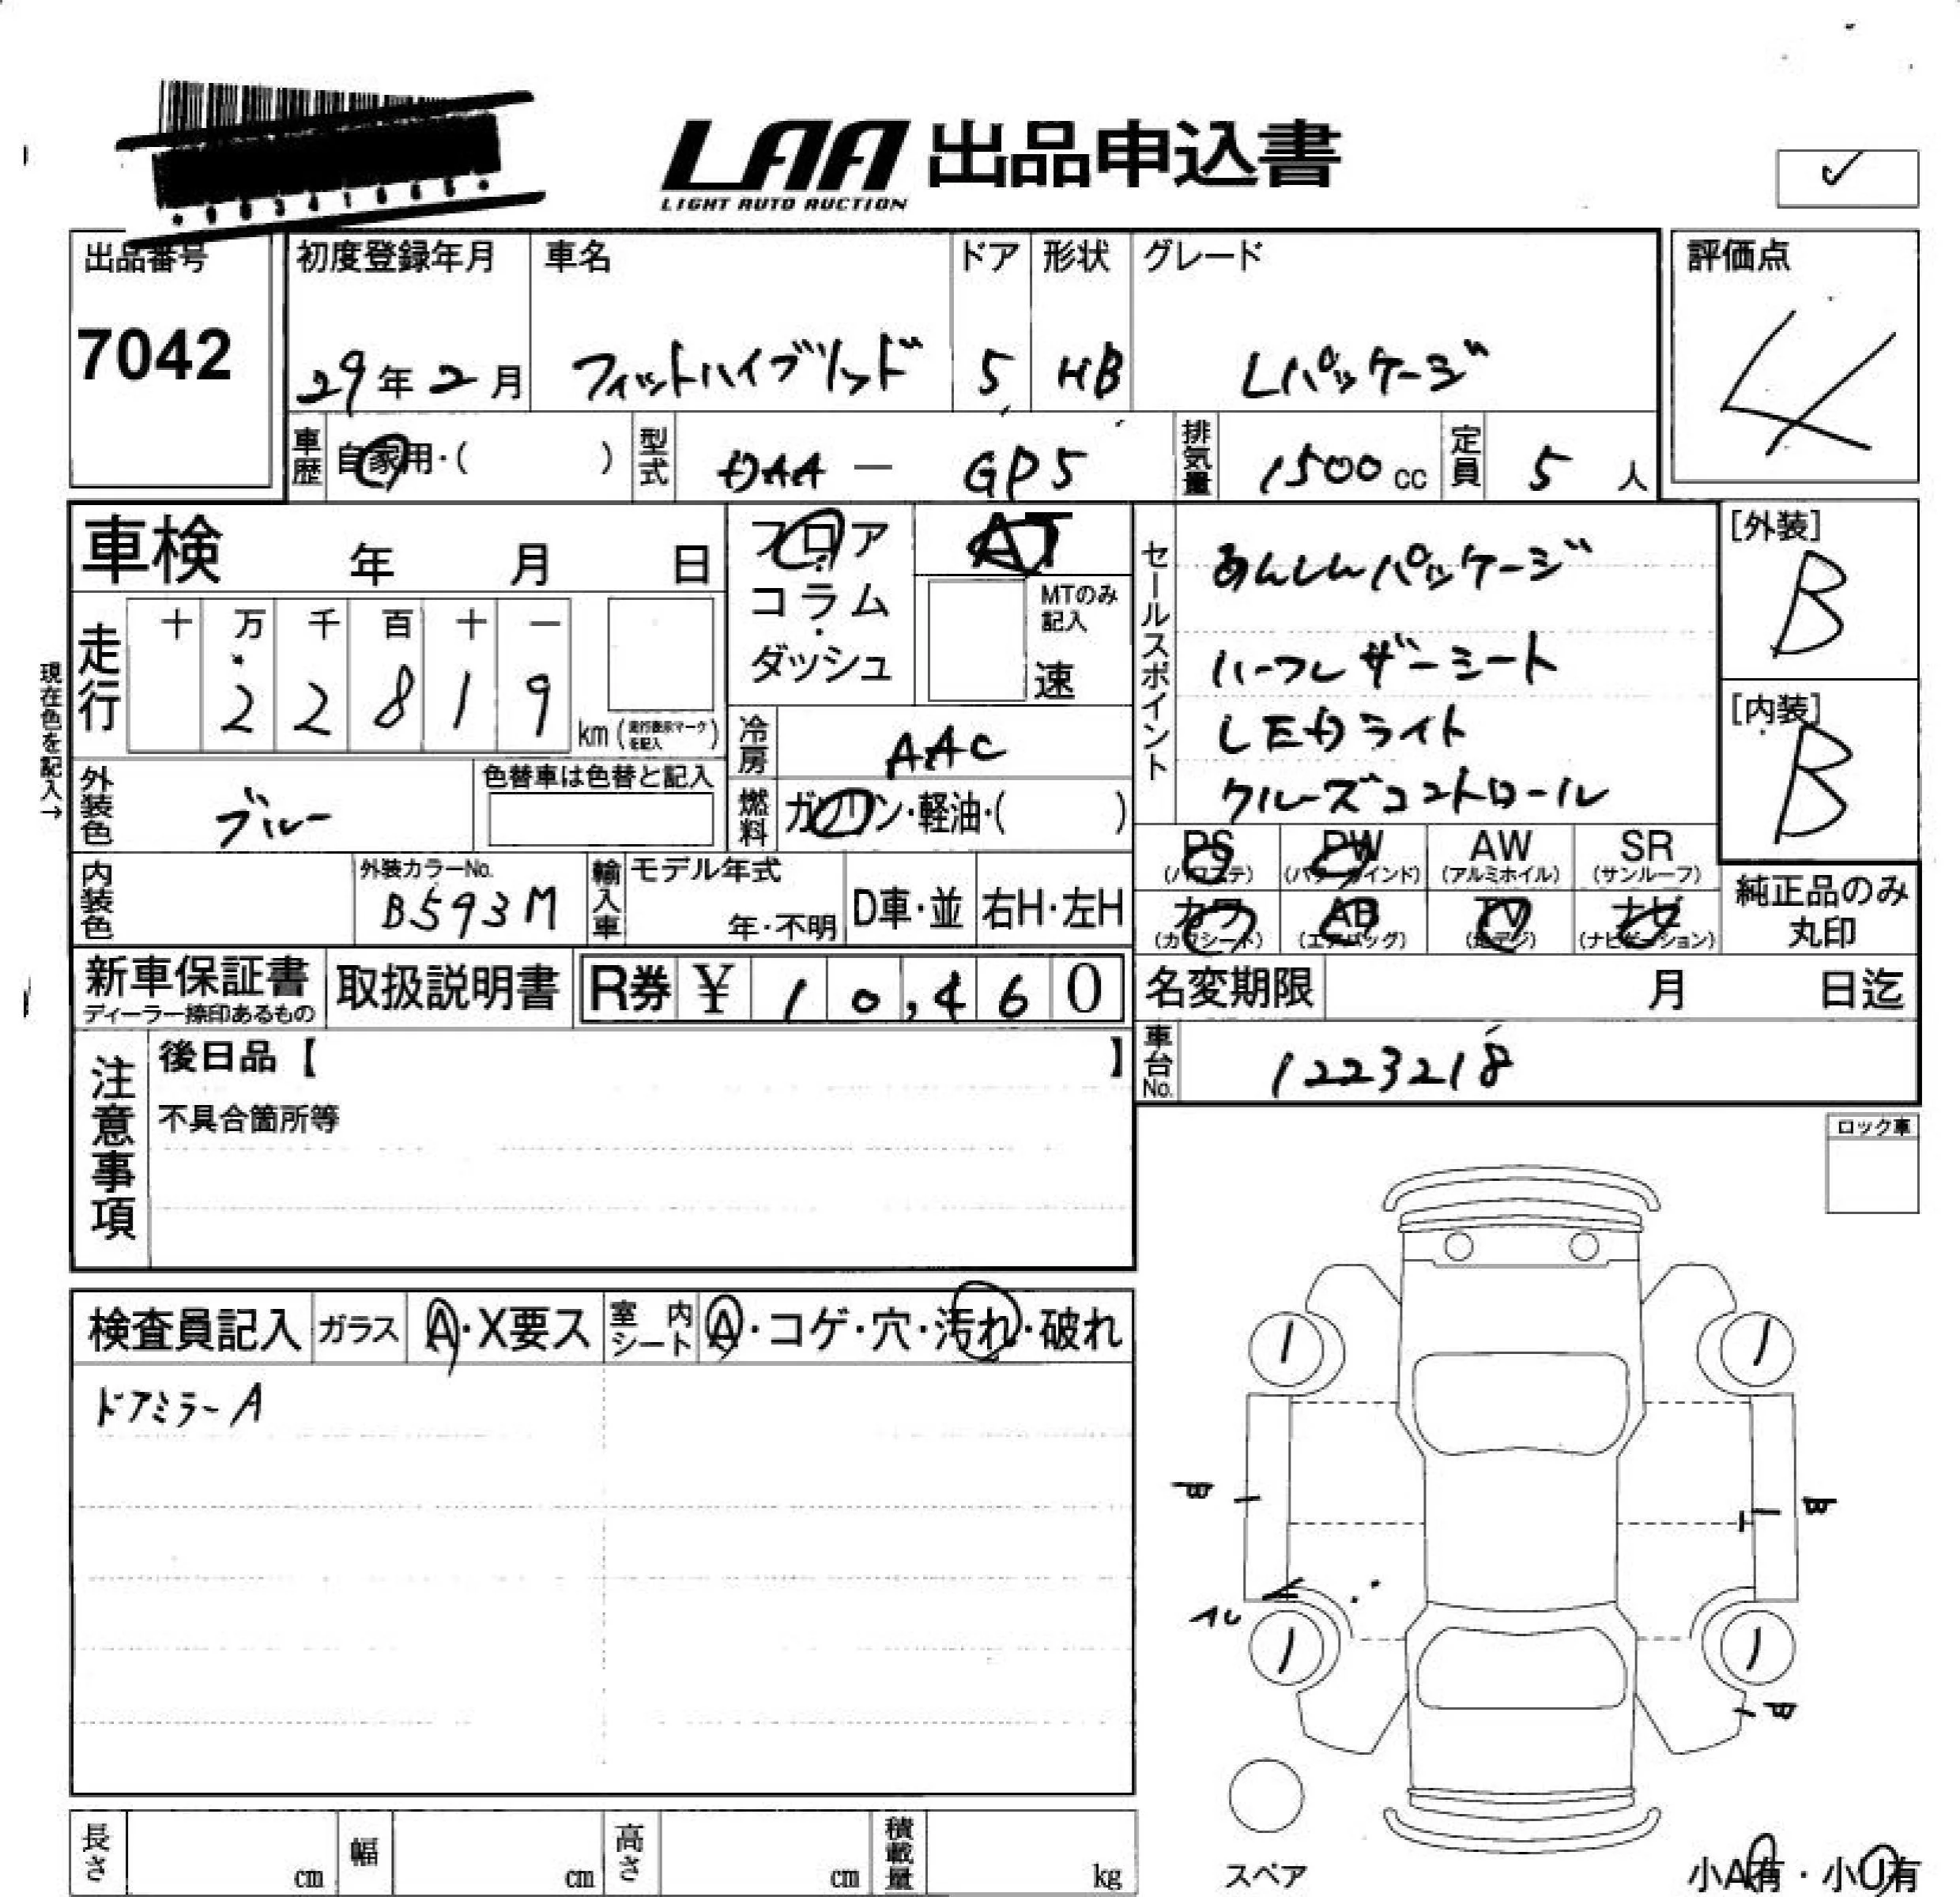 LAA 出品申込書
LIGHT AUTO AUCTION
出品番号
7042
初度登録年月
29年2月
車名
フィットハイブリッド
ドア
5
形状
HB
グレード
Lパッケージ
評価点
4
車歴
自家用・( )
型式
DAA - GP5
排気量
1500cc
定員
5人
車検 年 月 日
フロア・コラム・ダッシュ
AT
MTのみ記入
速
セールスポイント
あんしんパッケージ
ハーフレザーシート
LEDライト
クルーズコントロール
[外装]
B
[内装]
B
現在色を記入→
走行
十 万 千 百 十 一
2 2 8 1 9
km(走行表示マークを記入)
冷房
AAC
外装色
ブルー
色替車は色替と記入
燃料
ガソリン・軽油・( )
内装色
外装カラーNo.
B593M
輸入車
モデル年式
年・不明
D車・並
右H・左H
PS
(パワステ)
PW
(パワーウインド)
AW
(アルミホイル)
SR
(サンルーフ)
カワ
(カワシート)
AB
(エアバッグ)
TV
(地デジ)
ナビ
(ナビゲーション)
純正品のみ
丸印
新車保証書
ディーラー捺印あるもの
取扱説明書
R券 ¥ 10,460
名変期限 月 日迄
車台No.
1223218
注意事項
後日品【 】
不具合箇所等
ロック車
検査員記入
ガラス
A・X要ス
室内シート
A・コゲ・穴・汚れ・破れ
ドアミラーA
B
B
B
スペア
長さ cm
幅 cm
高さ cm
積載量 kg
小A有・小U有